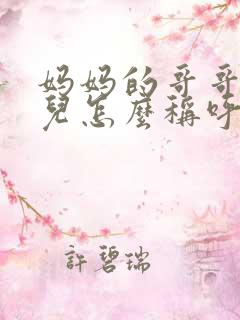 妈妈的哥哥
兒怎麼稱呼
許碧瑞